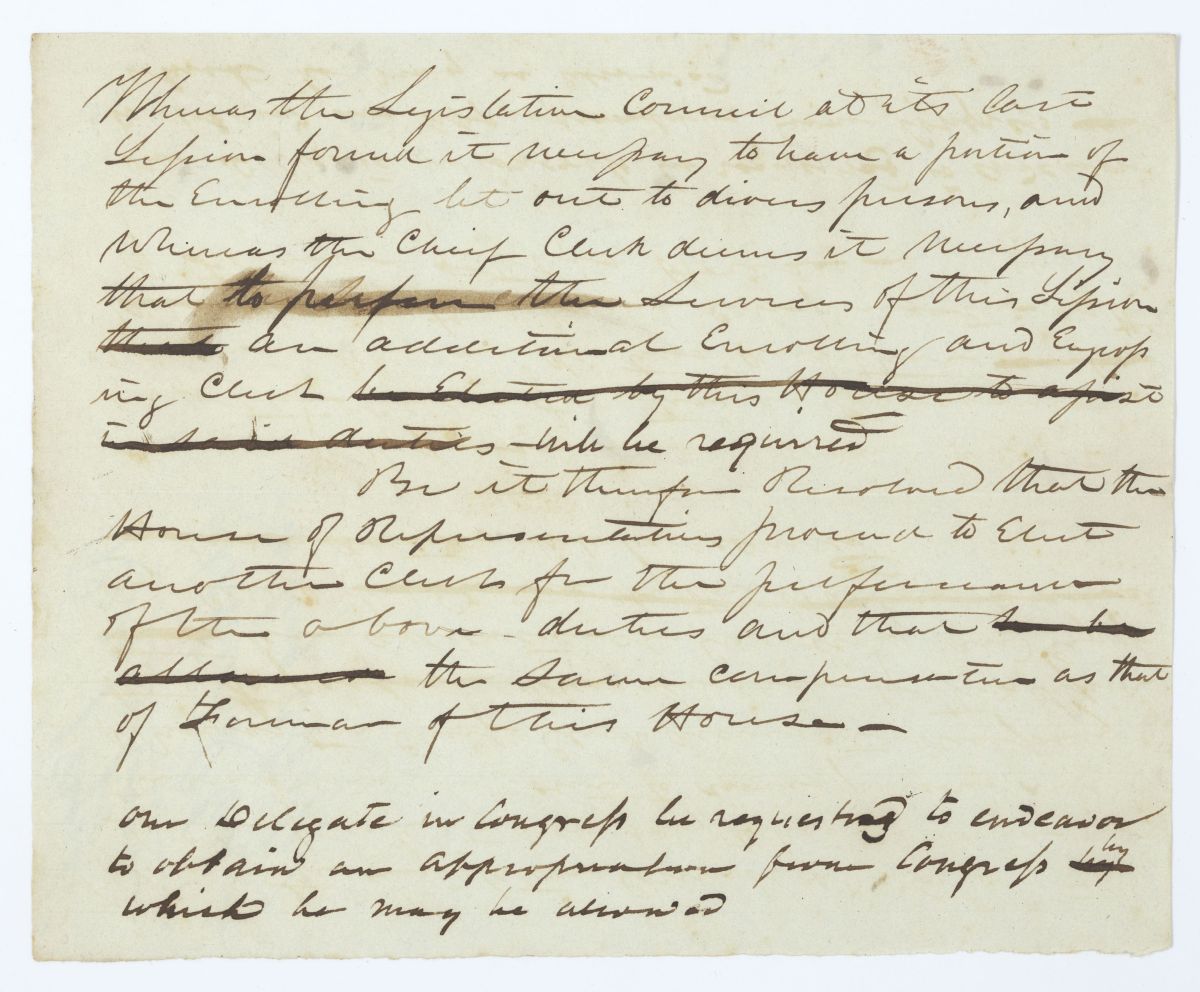 Whereas the Legislative Council at its last
Session found it necessary to have a portion of
the Enrolling let out to divers persons, and
Whereas the Chief Clerk deems it necessary
that to perform the Services of this Session
that an additional Enrolling and Engross
ing Clerk be Elected by this House to assist
in said duties will be required
Be it therefore Resolved that the
House of Representatives proceed to Elect
another Clerk for the performance
of the above duties and that he be
allowed the same compensation as that
of Foreman of this House —
our Delegate in Congress be requested to endeavor
to obtain an appropriation from Congress by
which he may be allowed